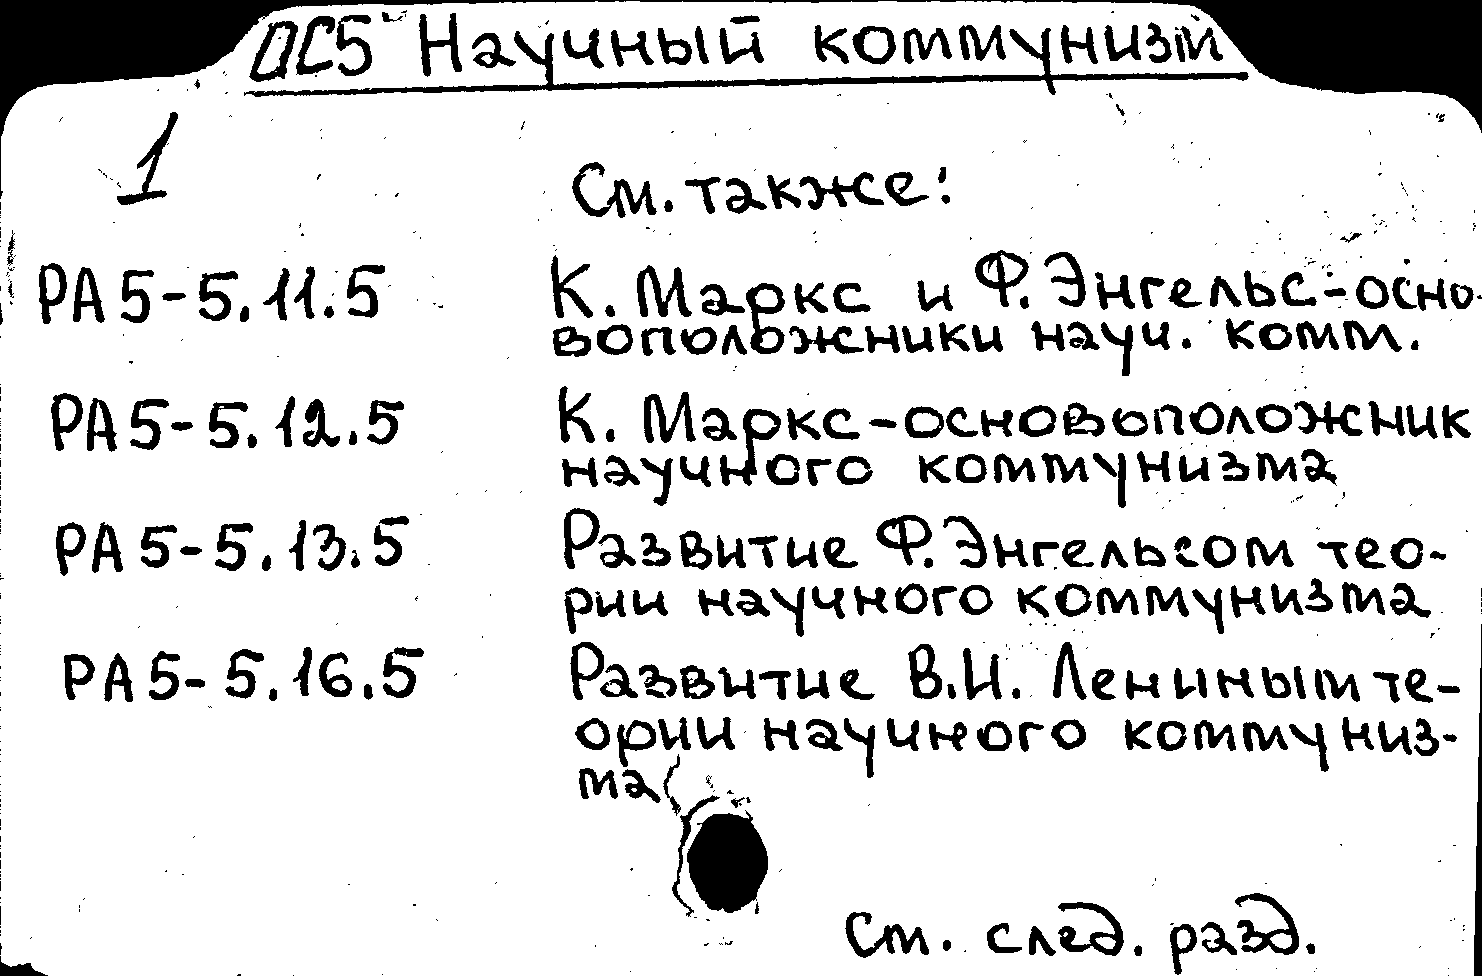 ОС5 Научный коммунизм
1
См. также:
РА5-5.11.5 К. Маркс и Ф. Энгельс-осно-
воположники науч. комм.
РА5-5.12.5 К. Маркс-основоположник
научного коммунизма
РА5-5.13.5 Развитие Ф. Энгельсом тео-
рии научного коммунизма
РА5-5.16.5 Развитие В.И. Лениным те-
ории научного коммуниз-
ма
См. след. разд.